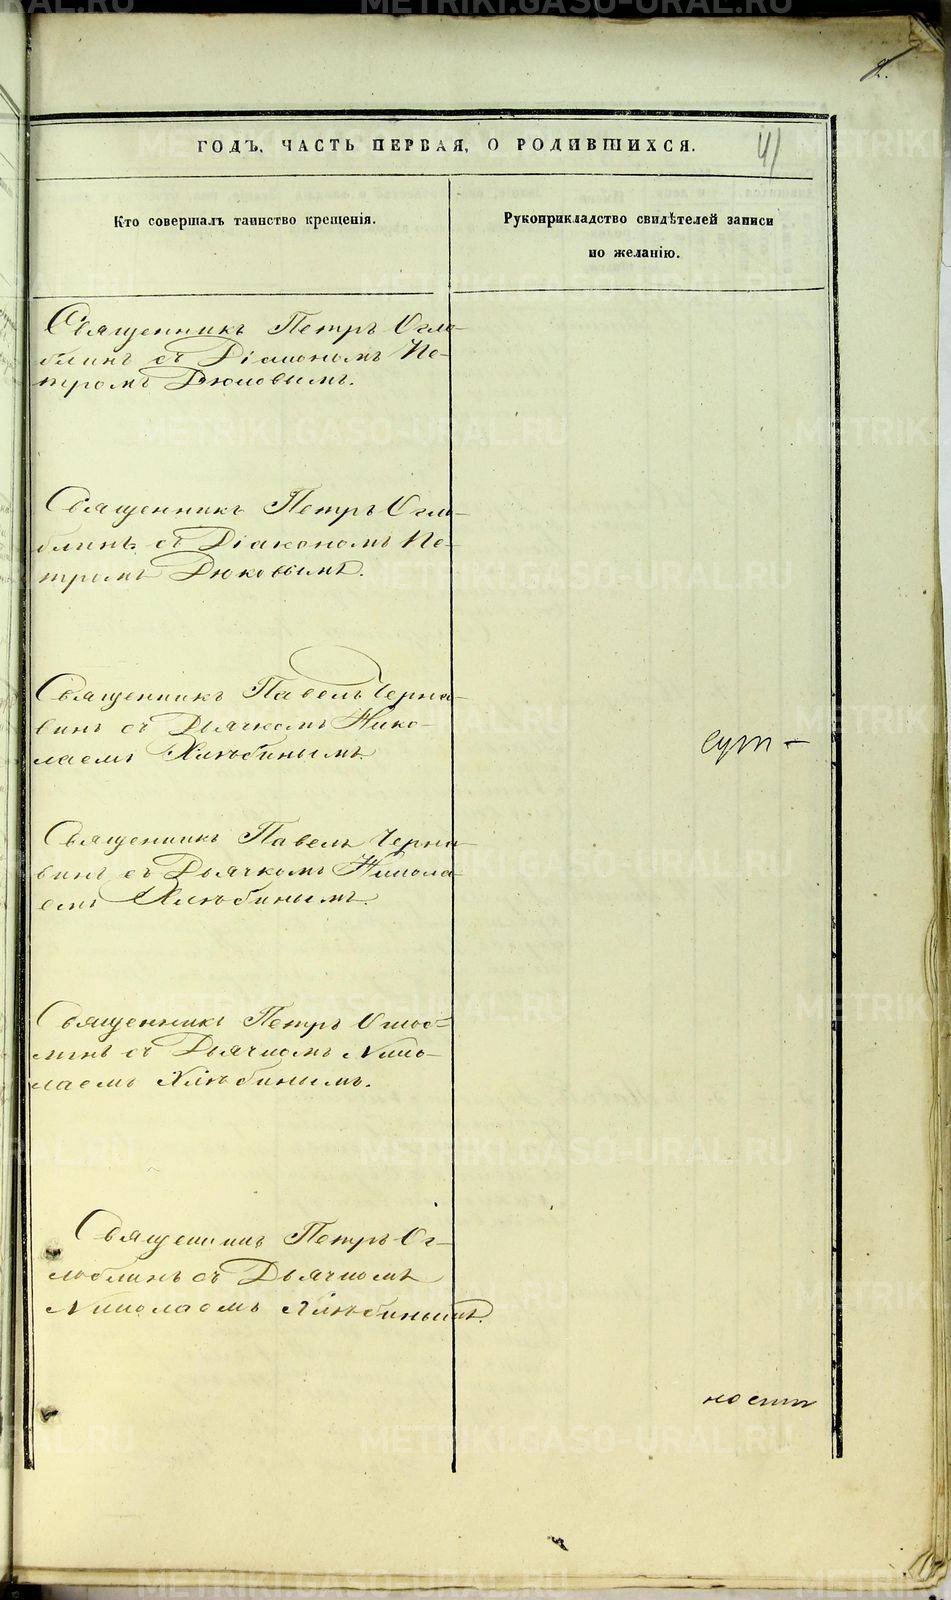 2.
ГОДЪ, ЧАСТЬ ПЕРВАЯ, О РОДИВШИХСЯ.
41
Кто совершалъ таинство крещенія.
Рукоприкладство свидѣтелей записи
по желанію.
Священникъ Петръ Огло-
блинъ съ Діакономъ Пе-
тромъ Дюковымъ.
Священникъ Петръ Огло-
блинъ съ Діакономъ Пе-
тромъ Дюковымъ.
Священникъ Павелъ Черна-
винъ съ Дьячкомъ Нико-
лаемъ Хлѣбинымъ.
Священникъ Павелъ Черна-
винъ съ Дьячкомъ Никола-
емъ Хлѣбинымъ.
Священникъ Петръ Оглоб-
линъ съ Дьячкомъ Нико-
лаемъ Хлѣбинымъ.
Священникъ Петръ Ог-
лоблинъ съ Дьячкомъ
Николаемъ Хлѣбинымъ.
METRIKI.GASO-URAL.RU